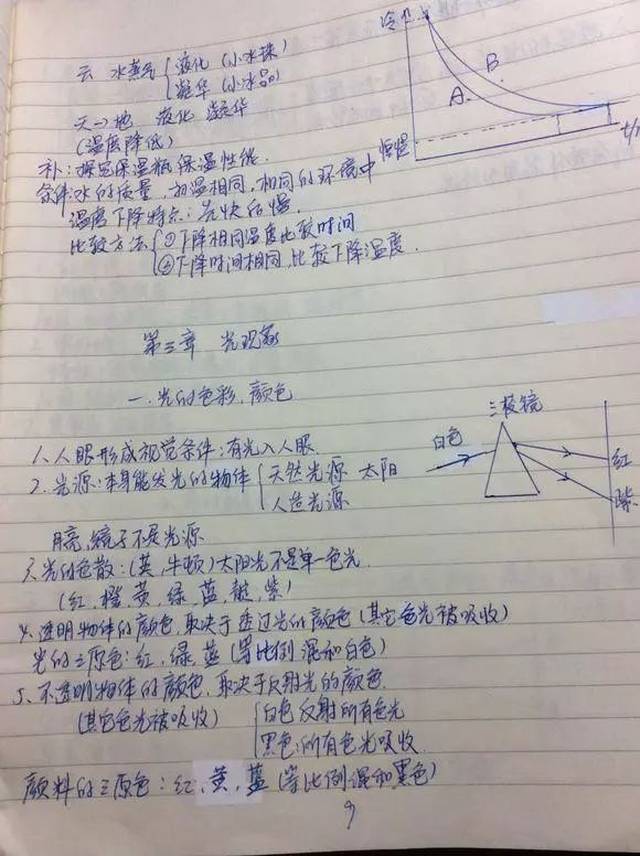 云 水蒸气 液化 (小水珠)
凝华 (小冰晶)
天→地 液化 凝华
(温度降低)
补:探究保温瓶保温性能.
条件:水的质量,初温相同,相同的环境中
温度下降特点:先快后慢.
比较方法 ①下降相同温度比较时间
②下降时间相同,比较下降温度.
B
A
第三章 光现象
一.光的色彩,颜色
1、人眼形成视觉条件:有光入人眼.
2.光源:本身能发光的物体 天然光源 太阳
人造光源
三棱镜
白色
红
月亮,镜子不是光源
3.光的色散:(英,牛顿)太阳光不是单一色光.
(红、橙、黄、绿、蓝、靛、紫)
4.透明物体的颜色,取决于透过光的颜色(其它色光被吸收)
光的三原色:红,绿,蓝(等比例混和白色)
5、不透明物体的颜色,取决于反射光的颜色.
(其它色光被吸收) 白色反射所有色光
黑色:所有色光吸收.
颜料的三原色:红、黄、蓝(等比例混和黑色)
9